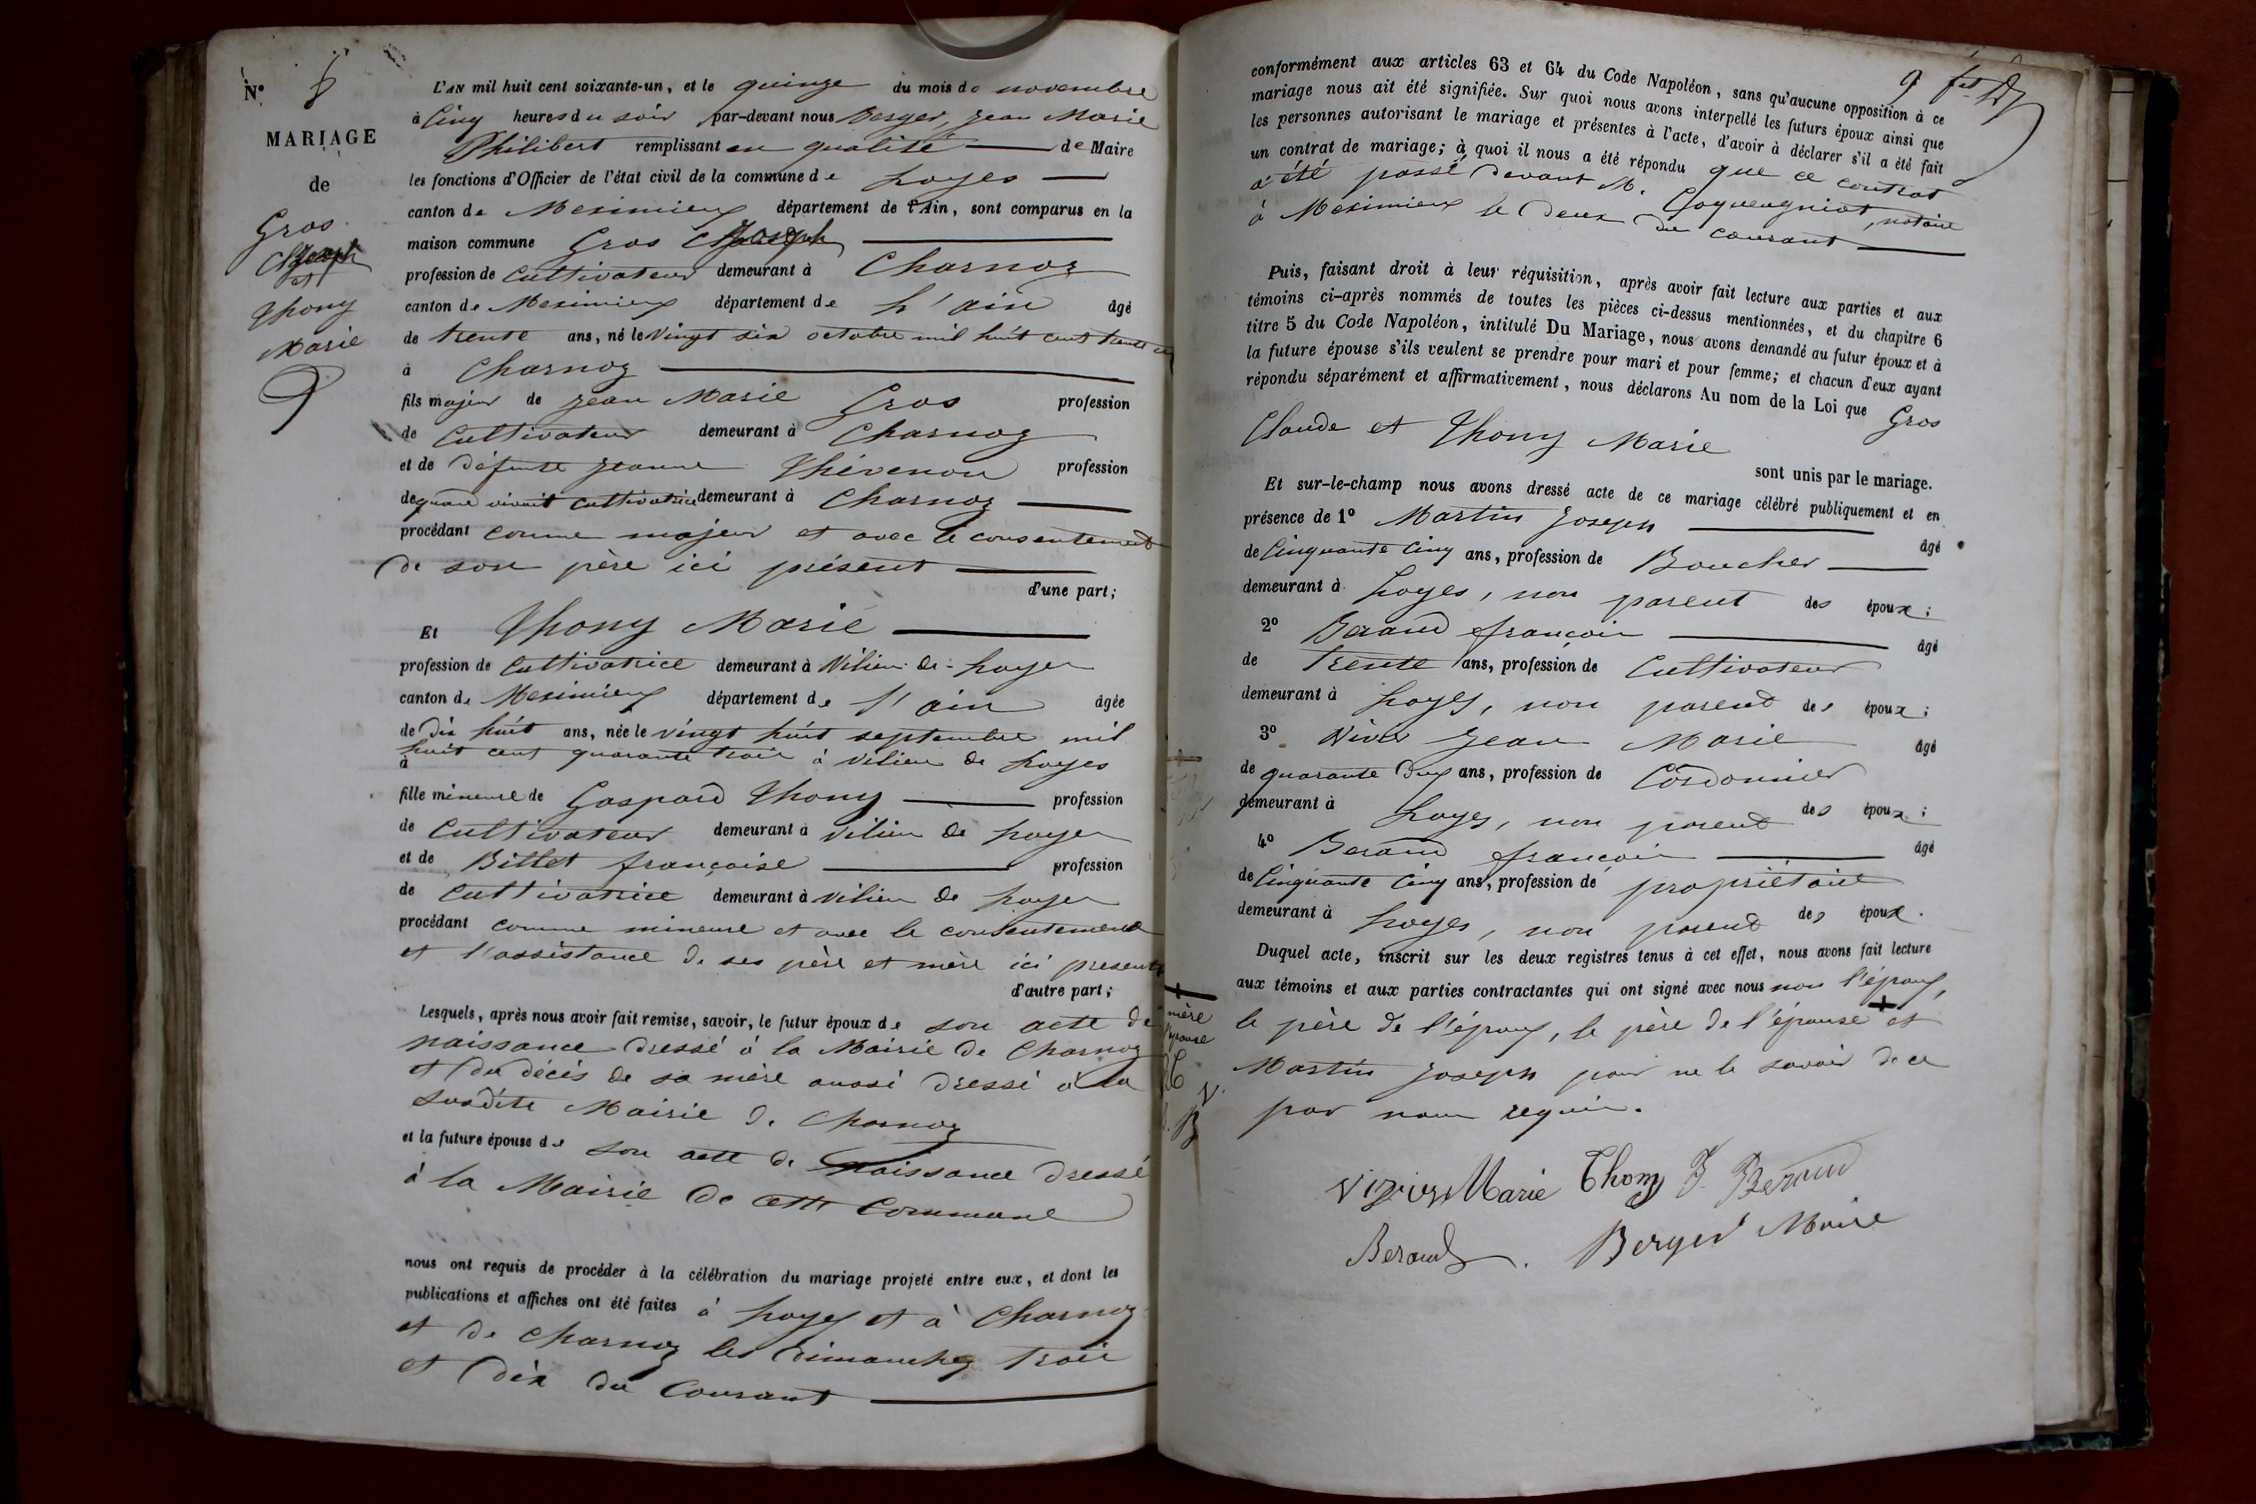 N° 8
MARIAGE
de
Gros
Joseph
et
Thony
Marie
L'AN mil huit cent soixante-un, et le quinze du mois de novembre
à Cinq heures du soir par-devant nous Berger, Jean Marie
Philibert remplissant en qualité de Maire
les fonctions d'Officier de l'état civil de la commune de Loyes
canton de Meximieux département de l'Ain, sont comparus en la
maison commune Gros Joseph
profession de Cultivateur demeurant à Charnoz
canton de Meximieux département de L'ain âgé
de trente ans, né le vingt six octobre mil huit cent trente
à Charnoz
fils majeur de Jean Marie Gros profession
de Cultivateur demeurant à Charnoz
et de défunte Jeanne Thévenon profession
de quand vivait cultivatrice demeurant à Charnoz
procédant comme majeur et avec le consentement
de son père ici présent
d'une part;
Et Thony Marie
profession de Cultivatrice demeurant à Vilieu de Loyes
canton de Meximieux département de l'ain âgée
de Dix huit ans, née le vingt huit septembre mil
huit cent quarante trois à Vilieu de Loyes
à
fille mineure de Gaspard Thony profession
de Cultivateur demeurant à Vilieu de Loyes
et de Billet françoise profession
de Cultivatrice demeurant à Vilieu de Loyes
procédant comme mineure et avec le consentement
et l'assistance de ses père et mère ici présents
d'autre part;
Lesquels, après nous avoir fait remise, savoir, le futur époux de son acte de
naissance dressé à la Mairie de Charnoz
et du décès de sa mère aussi dressé à la
susdite Mairie de Charnoz
et la future épouse de son acte de naissance dressé
à la Mairie de cette Commune
nous ont requis de procéder à la célébration du mariage projeté entre eux, et dont les
publications et affiches ont été faites à Loyes et à Charnoz
et de Charnoz les dimanches trois
et dix du Courant
conformément aux articles 63 et 64 du Code Napoléon, sans qu'aucune opposition à ce
mariage nous ait été signifiée. Sur quoi nous avons interpellé les futurs époux ainsi que
les personnes autorisant le mariage et présentes à l'acte, d'avoir à déclarer s'il a été fait
un contrat de mariage; à quoi il nous a été répondu que ce contrat
a été passé devant M. notaire
à Meximieux le deux du courant
Puis, faisant droit à leur réquisition, après avoir fait lecture aux parties et aux
témoins ci-après nommés de toutes les pièces ci-dessus mentionnées, et du chapitre 6
titre 5 du Code Napoléon, intitulé Du Mariage, nous avons demandé au futur époux et à
la future épouse s'ils veulent se prendre pour mari et pour femme; et chacun d'eux ayant
répondu séparément et affirmativement, nous déclarons Au nom de la Loi que Gros
Claude et Thony Marie
sont unis par le mariage.
Et sur-le-champ nous avons dressé acte de ce mariage célébré publiquement et en
présence de 1° Martin Joseph âgé
de Cinquante Cinq ans, profession de Boucher
demeurant à Loyes, non parent des époux;
2° Beraud françois âgé
de Trente ans, profession de Cultivateur
demeurant à Loyes, non parent des époux;
3° Jean Marie âgé
de quarante Deux ans, profession de Cordonnier
demeurant à Loyes, non parent des époux;
4° Beraud françois âgé
de Cinquante Cinq ans, profession de propriétaire
demeurant à Loyes, non parent des époux.
Duquel acte, inscrit sur les deux registres tenus à cet effet, nous avons fait lecture
aux témoins et aux parties contractantes qui ont signé avec nous non l'époux,
le père de l'époux, le père de l'épouse et
Martin Joseph pour ne le savoir de ce
par nous requis.
mère
l'épouse
V.
B
Marie Thony F. Beraud
Beraud Berger Maire